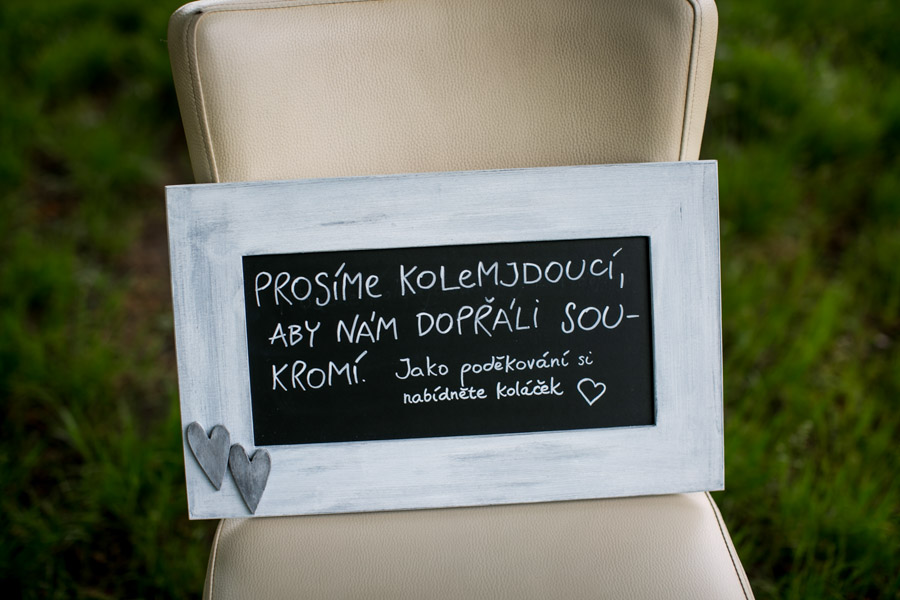 PROSÍME KOLEMJDOUCÍ,
ABY NÁM DOPŘÁLI SOU-
KROMÍ. Jako poděkování si
nabídněte koláček ♡